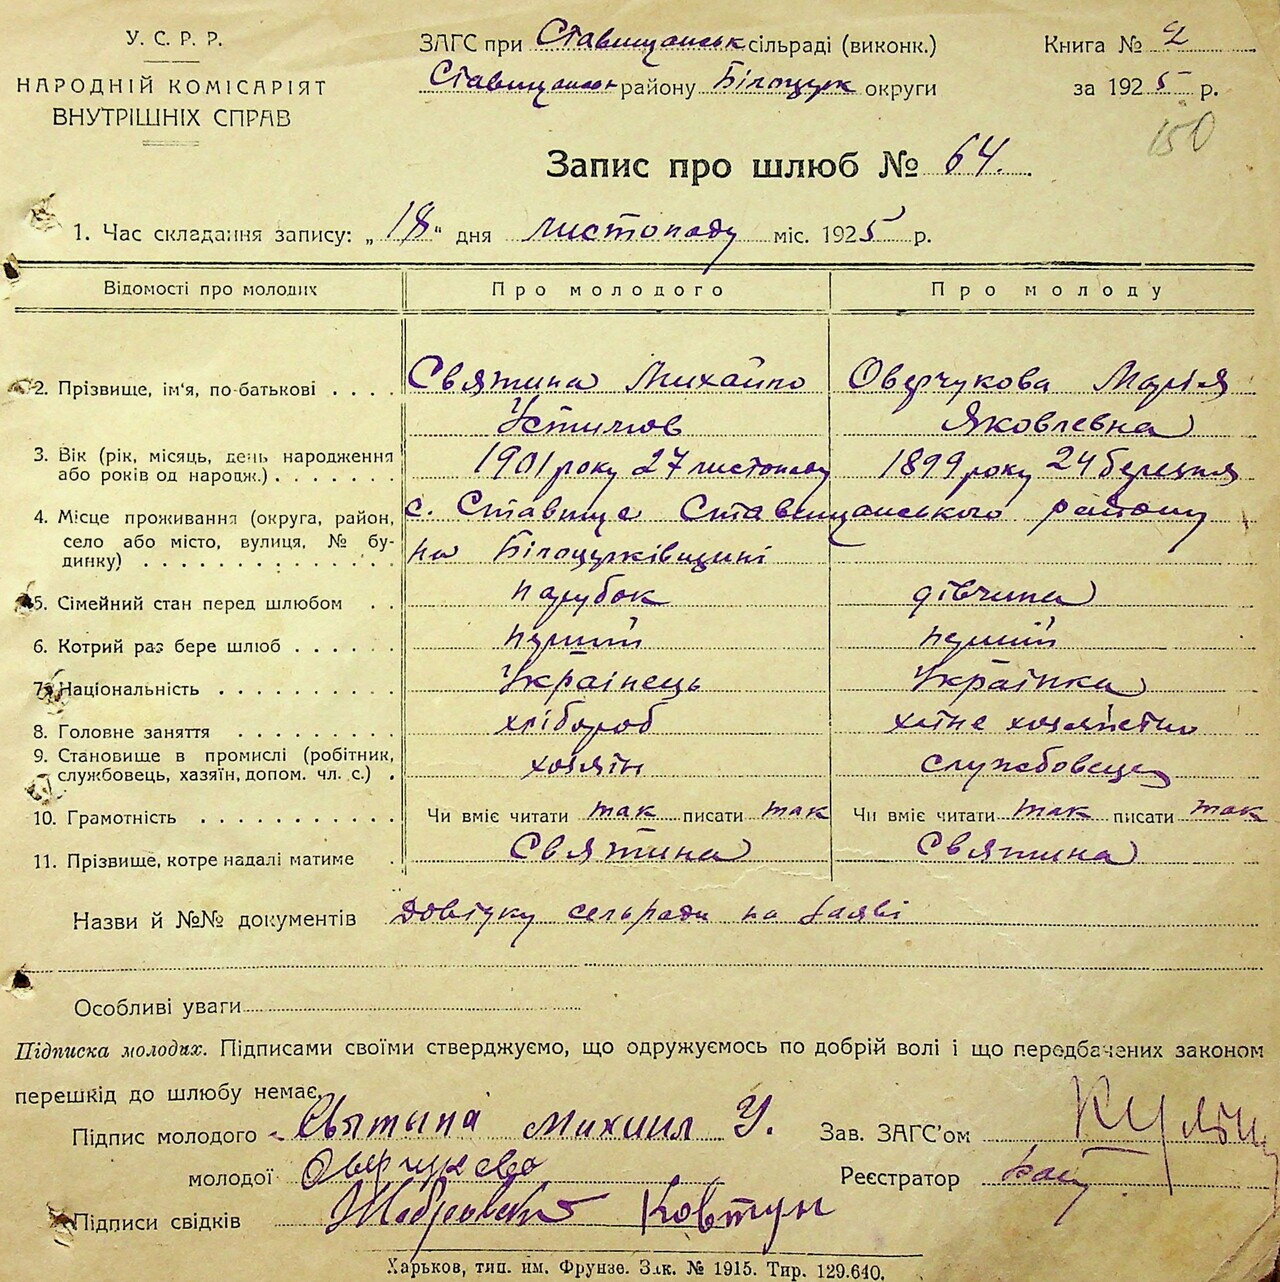 У. С. Р. Р.
НАРОДНІЙ КОМІСАРІЯТ
ВНУТРІШНІХ СПРАВ
ЗАГС при Ставищанськ сільраді (виконк.)
Ставищанськ району Білоцерк округи
Книга № 2
за 1925 р.
150
Запис про шлюб № 64.
1. Час складання запису: „18“ дня листопаду міс. 1925 р.
Відомості про молодих Про молодого Про молоду
2. Прізвище, ім'я, по-батькові . . . . Святина Михайло Оверчукова Марія
Устимов Яковлевна
3. Вік (рік, місяць, день народження 1901 року 27 листопаду 1899 року 24 березня
або років од народж.) . . . . . . .
4. Місце проживання (округа, район, с. Ставище Ставищанського району
село або місто, вулиця, № бу- на Білоцерківщині
динку) . . . . . . . . . . . . . .
5. Сімейний стан перед шлюбом . . парубок дівчина
6. Котрий раз бере шлюб . . . . . . перший перший
7. Національність . . . . . . . . . . Українець Українка
8. Головне заняття . . . . . . . . . хлібороб хатнє хозяйство
9. Становище в промислі (робітник,
службовець, хазяїн, допом. чл. с.) . хозяїн службовець
10. Грамотність . . . . . . . . . . . Чи вміє читати так писати так Чи вміє читати так писати так
11. Прізвище, котре надалі матиме . Святина Святина
Назви й №№ документів довідку сельради на заяві
Особливі уваги
Підписка молодих. Підписами своїми стверджуємо, що одружуємось по добрій волі і що передбачених законом
перешкід до шлюбу немає.
Підпис молодого Святина Михаил У.
молодої Оверчукова
Підписи свідків Ковтун
Зав. ЗАГС'ом
Реєстратор
Харьков, тип. им. Фрунзе. Зак. № 1915. Тир. 129.640.